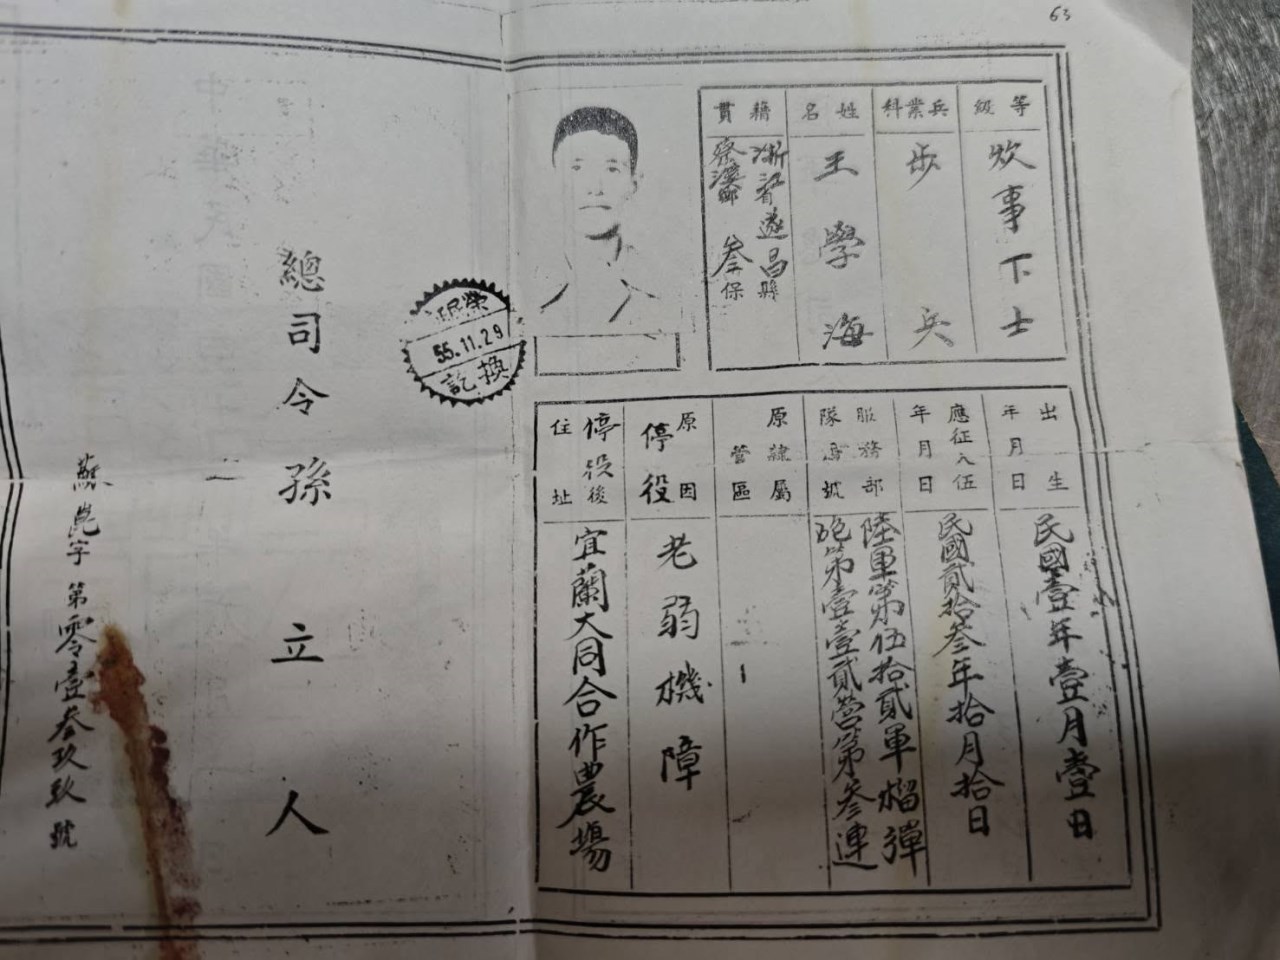 63
等級
炊事下士
兵業科
步兵
姓名
王學海
籍貫
浙江省遂昌縣
叁保
出生年月日
民國壹年壹月壹日
應征入伍年月日
民國貳拾叁年拾月拾日
服務部隊番號
陸軍第伍拾貳軍榴彈
砲第壹壹貳營第叁連
原隸屬管區
停役原因
老弱機障
停役後住址
宜蘭大同合作農場
55.11.29
換訖
總司令孫立人
第零壹叁玖玖號